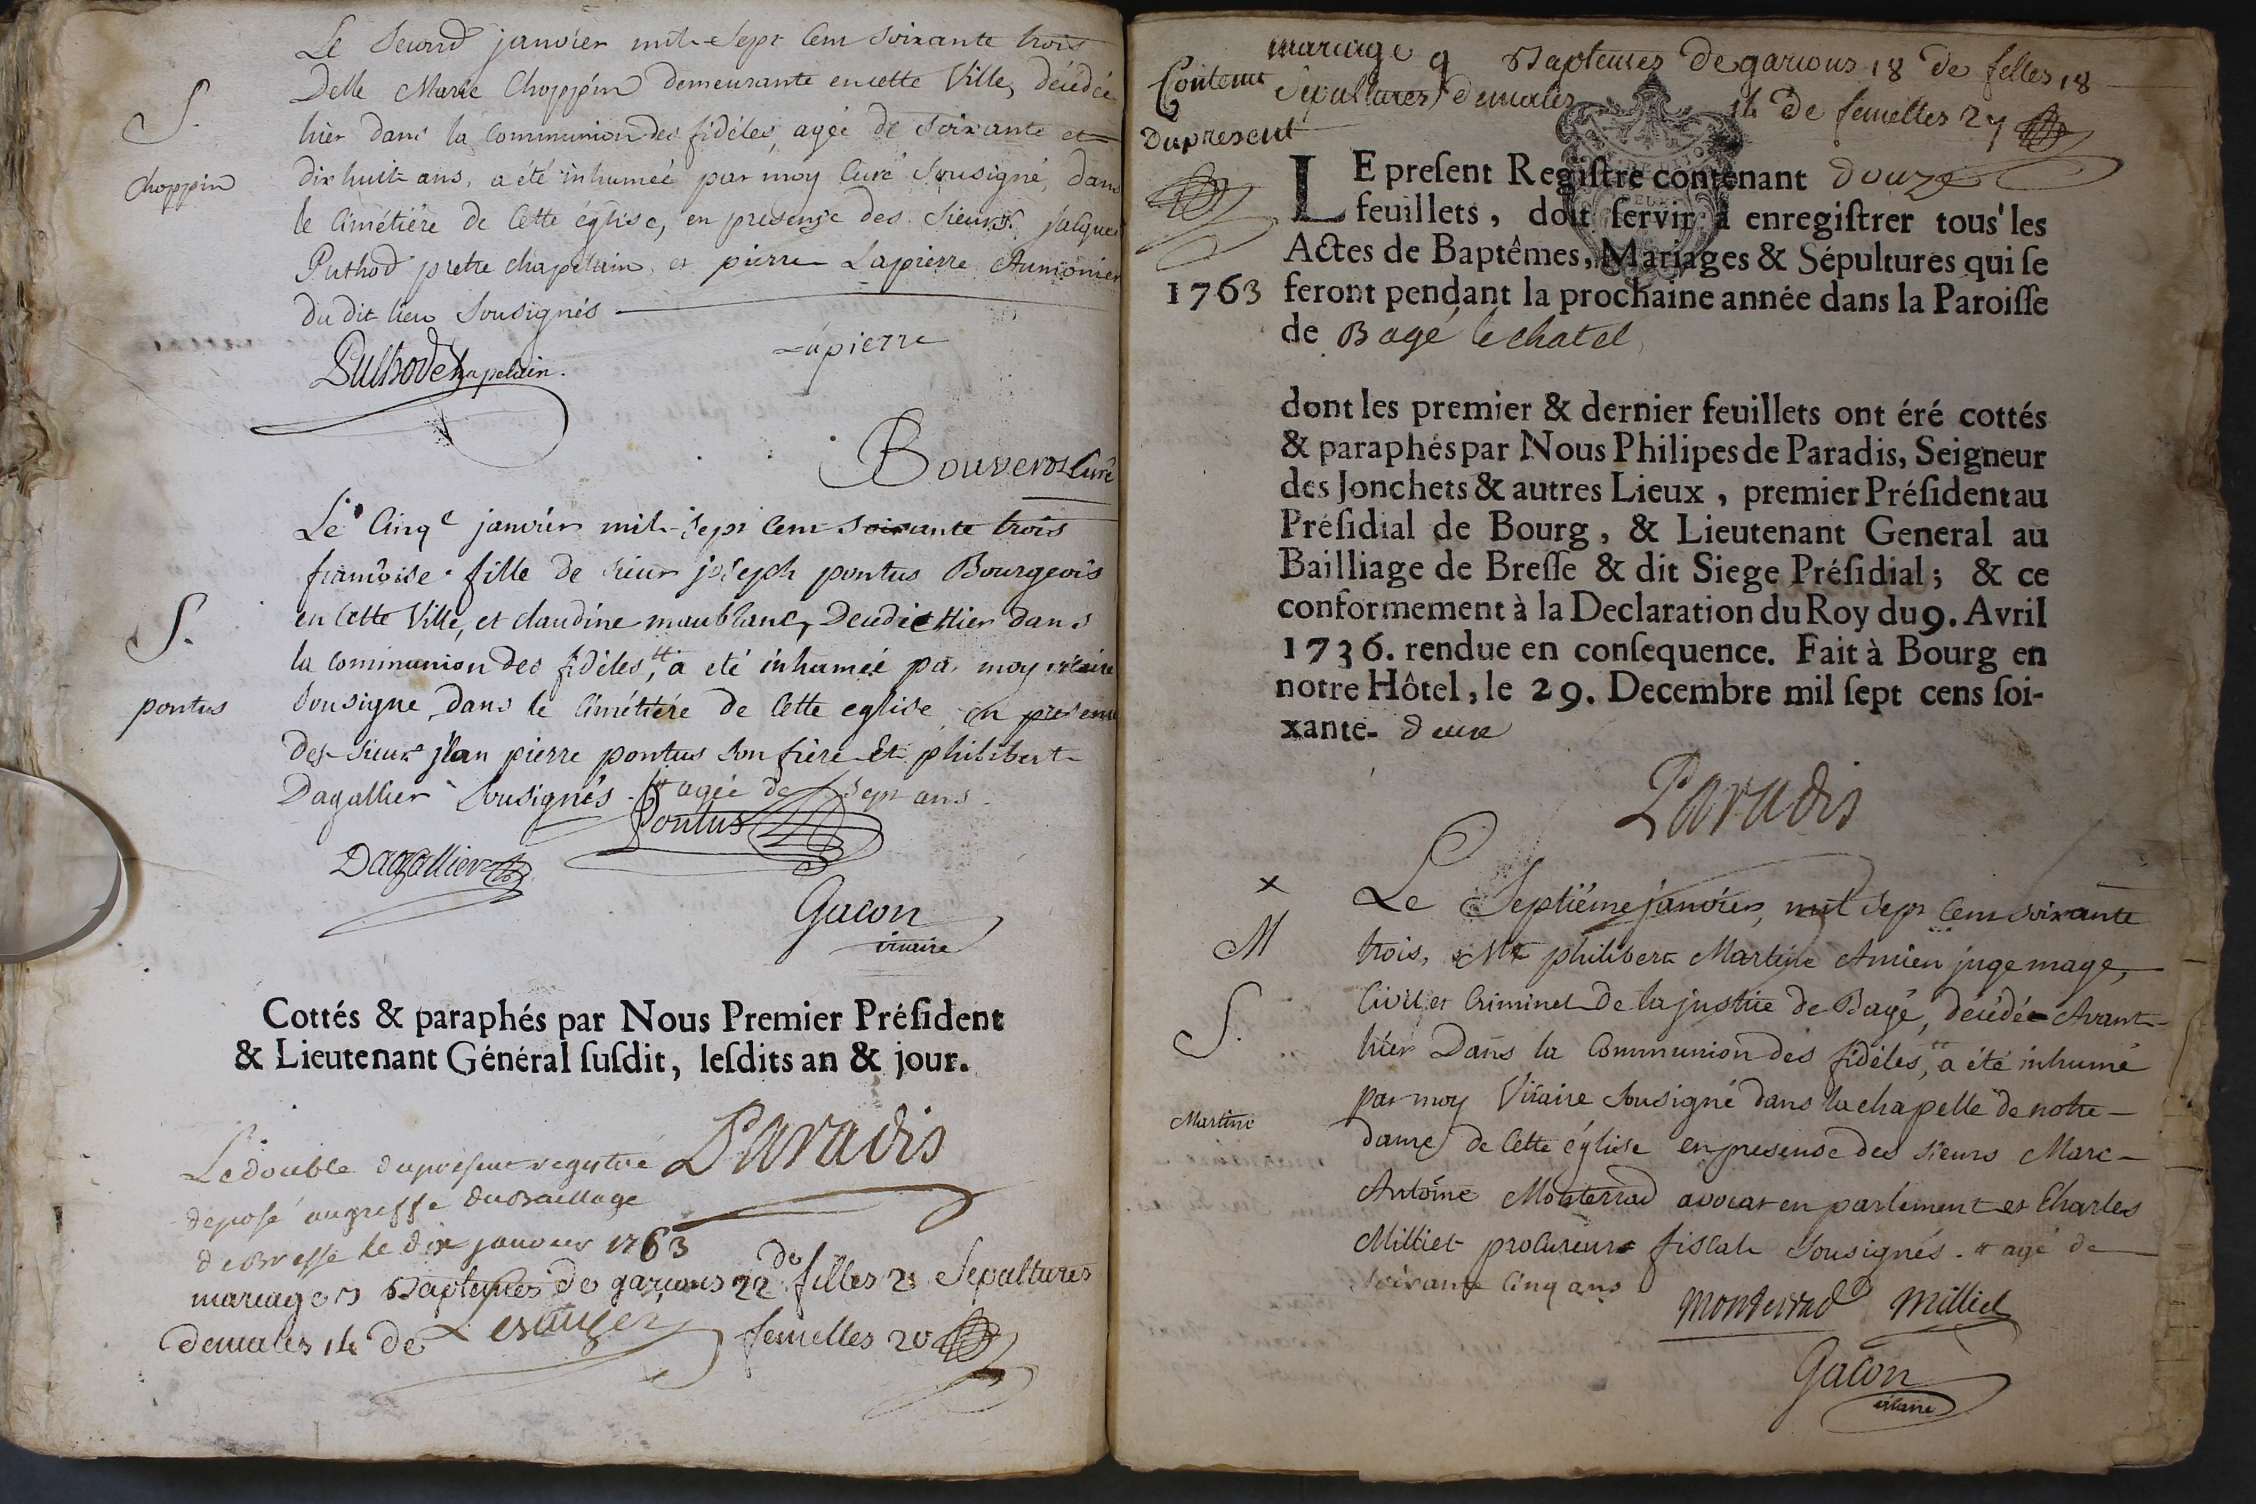 Le Second janvier mil Sept Cent Soixante trois
Delle Marie Choppin demeurante en cette Ville, décédée
S.
hier dans la Communion des fidéles, agée de Soixante et
dix huit ans, a été inhumée par moy Curé Sousigné, dans
Choppin
le Cimétiére de Cette église, en presense des Sieurs Jacques
Puthod pretre chapelain, et pierre Lapierre Aumonier
du dit lieu Sousignés
Puthod chapelain.
Lapierre
Bouveros Curé
Le Cinqe janvier mil Sept Cent Soixante trois
francoise fille de sieur joseph pontus Bourgeois
en Cette Ville, et claudine maublanc, Decedée Hier dans
S.
la communion des fidéles, # a eté inhumée par moy vicaire
Sousigne, Dans le Cimétiére de Cette eglise en presense
pontus
des sieurs jean pierre pontus son frere Et philibert
Dagallier Sousignés. # agée de sept ans.
Pontus
Dagallier
Gacon
vicaire
Cottés & paraphés par Nous Premier Préſident
& Lieutenant Général ſuſdit, leſdits an & jour.
Paradis
Le double du présent registre
déposé au greffe du Baillage
de Bresse le dix janvier 1763
mariages Baptemes de garçons 22 de filles 21 Sepultures
de males 14 de femelles 20
mariage 9 Baptemes de garcons 18 de filles 18
Contenu Sépultures de males 14 de femelles 27
du present
LE preſent Regiſtre contenant douze
feuillets, doit ſervir à enregiſtrer tous les
Actes de Baptêmes, Mariages & Sépultures qui ſe
1763 feront pendant la prochaine année dans la Paroiſſe
de Bagé le chatel
dont les premier & dernier feuillets ont éré cottés
& paraphés par Nous Philipes de Paradis, Seigneur
des Jonchets & autres Lieux, premier Préſident au
Préſidial de Bourg, & Lieutenant General au
Bailliage de Breſſe & dit Siege Préſidial; & ce
conformement à la Declaration du Roy du 9. Avril
1736. rendue en conſequence. Fait à Bourg en
notre Hôtel, le 29. Decembre mil ſept cens ſoi-
xante- deux
Paradis
x
Le Septiéme janvier, mil Sept Cent Soixante
M
trois, Mre philibert Martine Ancien juge mage,
Civil et Criminel de la justice de Bagé, décédé Avant
S.
hier Dans la Communion des fidéles, # a été inhumé
par moy Vicaire Sousigné dans la chapelle de notre
Martine
dame de Cette église en presense des Sieurs Marc
Antoine Monterrad avocat en parlement et Charles
Milliet procureur fiscal Sousignés. # agé de
soixante Cinq ans
Monterrad Milliet
Gacon
vicaire